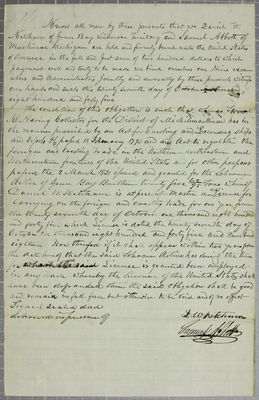 Know all men by these presents that we Daniel W.
of Green Bay Wisconsin Territory and Samuel Abbott of
Mackinac Michigan are held and firmly bound unto the United States
of America in the full and just sum of two hundred dollars to which
payment well and truly to be made we bind ourselves our heirs exe-
cutors and Administrators jointly and severally by these presents witness
our hands and seals this twenty seventh day of
eight hundred and forty five
The condition of this obligation is such that whereas
C. Waring Collector for the District of Michilimackinac has in
the manner prescribed by an Act for Enrolling and Licensing ships
and vessels passed 18 February 1793 and an Act to regulate the
foreign and coasting trade on the northern northeastern and
Northwestern frontiers of the United States and for other purposes
passed the 2 March 1831 issued and granted for the Schooner
Active of Green Bay Burthen twenty five Tons
Daniel W. is at present Master a License for
carrying on the foreign and coasting trade for one year from
the twenty seventh day of October one thousand eight hundred
and forty five, which License is dated the twenty seventh day of
October one thousand eight hundred and forty five and
eighteen Now therefore if it shall appear within two years from
the date hereof that the said Schooner Active has during the time
for License is granted been employed
in any trade whereby the Revenue of the United States shall
have been defrauded then the said Obligation shall be good
and remain in full force but otherwise to be void and of no effect
Signed Sealed and
delivered in presence of
D. W.
Samuel Abbott